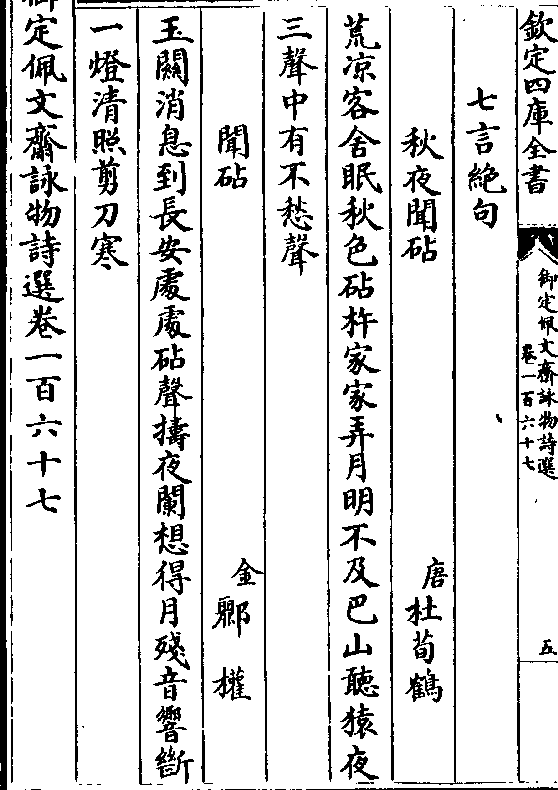 欽定四庫全書
御定佩文齋詠物詩選
卷一百六十七
五
七言絶句
秋夜聞砧
唐杜荀鶴
荒凉客舍眠秋色砧杵家家弄月明不及巴山聽猿夜
三聲中有不愁聲
聞砧
金酈權
玉關消息到長安處處砧聲擣夜闌想得月殘音響斷
一燈清照剪刀寒
御定佩文齋詠物詩選卷一百六十七